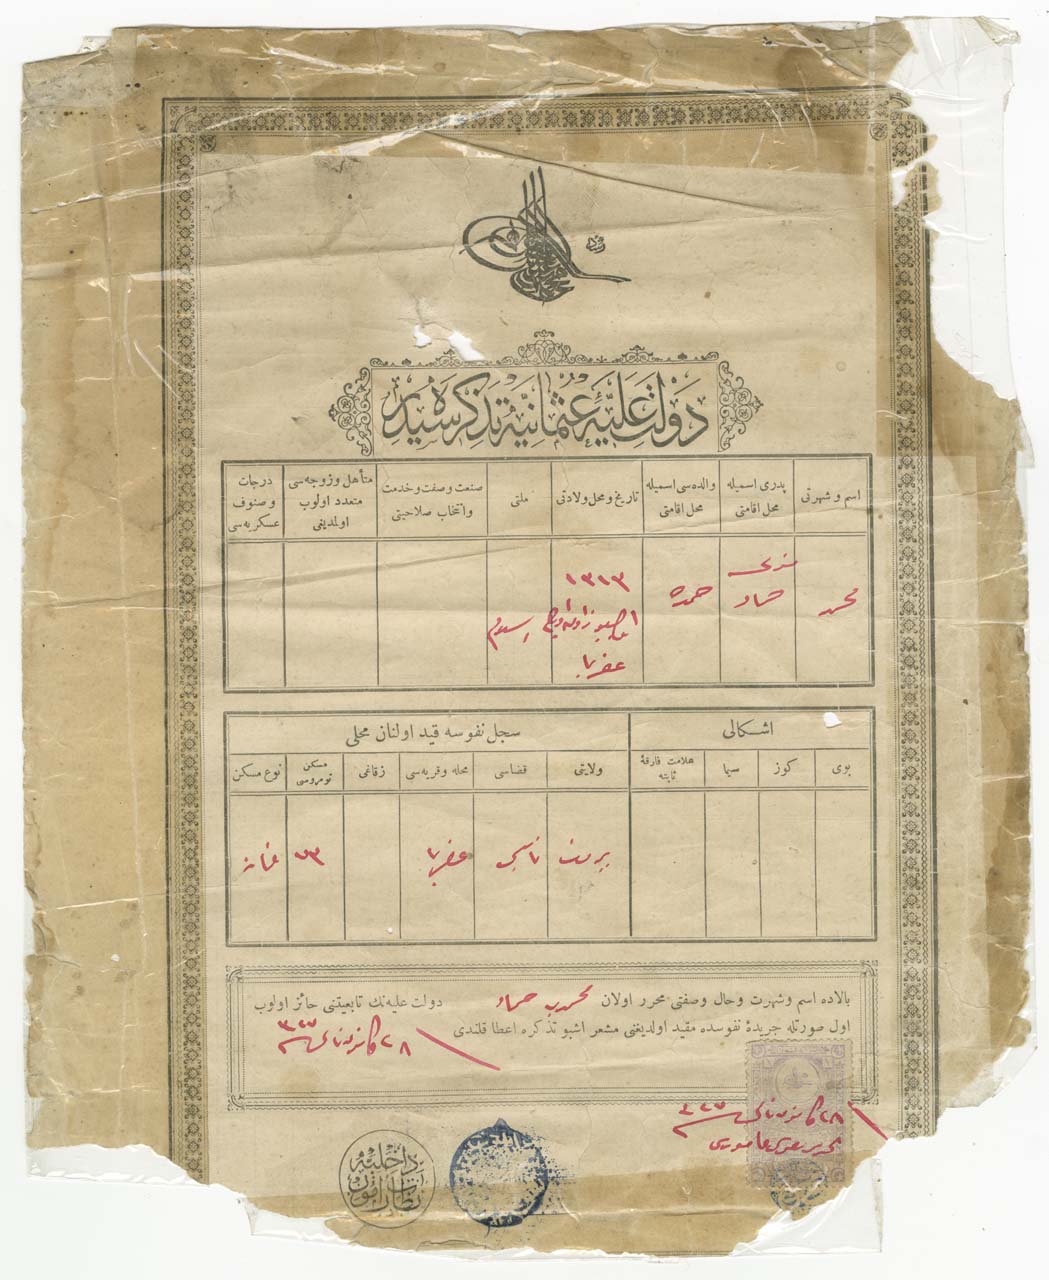 دولت علیهٔ عثمانیه تذكره سیدر
اسم و شهرتی
پدری اسمیله محل اقامتی
والده سی اسمیله محل اقامتی
تاریخ و محل ولادتی
ملتی
صنعت و صفت و خدمت و انتخاب صلاحیتی
متأهل و زوجه سی متعدد اولوب اولمدیغی
درجات و صنوف عسكریه سی
محمد
حماد
حمده
١٣١٣
عقربا
اسلام
اشكالی
سجل نفوسه قید اولنان محلی
بوی
كوز
سیما
علامت فارقهٔ ثابته
ولایتی
قضاسی
محله و قریه سی
زقاغی
مسكن نومروسی
نوع مسكن
بیروت
نابلس
عقربا
٧٣
خانه
بالاده اسم و شهرت و حال و صفتی محرر اولان محمد بن حماد دولت علیه نك تابعیتنی حائز اولوب
اول صورتله جریدهٔ نفوسده مقید اولدیغنی مشعر اشبو تذكره اعطا قلندی
٢٨ كانون ثانی ٣٢٧
٢٨ كانون ثانی ٣٢٧
داخلیه نظارتی